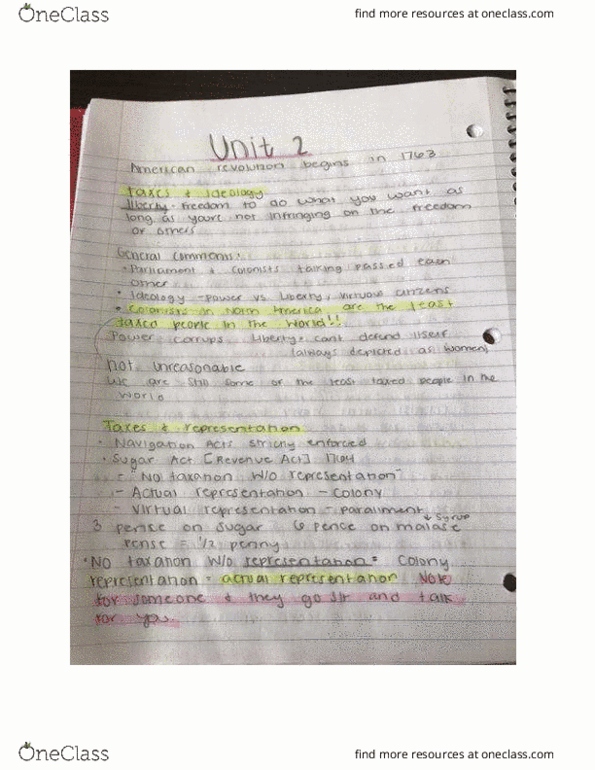 OneClass
find more resources at oneclass.com
Unit 2
American revolution begins in 1763
taxes + Ideology
liberty- freedom to do what you want as
long as youre not infringing on the freedom
of others
General comments:
• Parliament + colonists talking passed each
other
• Ideology - power vs Liberty, virtuous citizens
• Colonists in North America are the least
taxed people in the world!!
Power corrups Liberty- cant defend itself
(always depicted as women)
not unreasonable
We are still some of the least taxed people in the
world
Taxes & representation
• Navigation Acts strictly enforced
• Sugar Act [Revenue Act] 1764
- "No taxation w/o representation"
- Actual representation - colony
- Virtual representation - paraliment
↓ syrup
3 pense on sugar 6 pence on malase
pense = 1/2 penny
• No taxation w/o representation = colony
representation = actual representation Note
for someone & they go sit and talk
for you.
OneClass
find more resources at oneclass.com